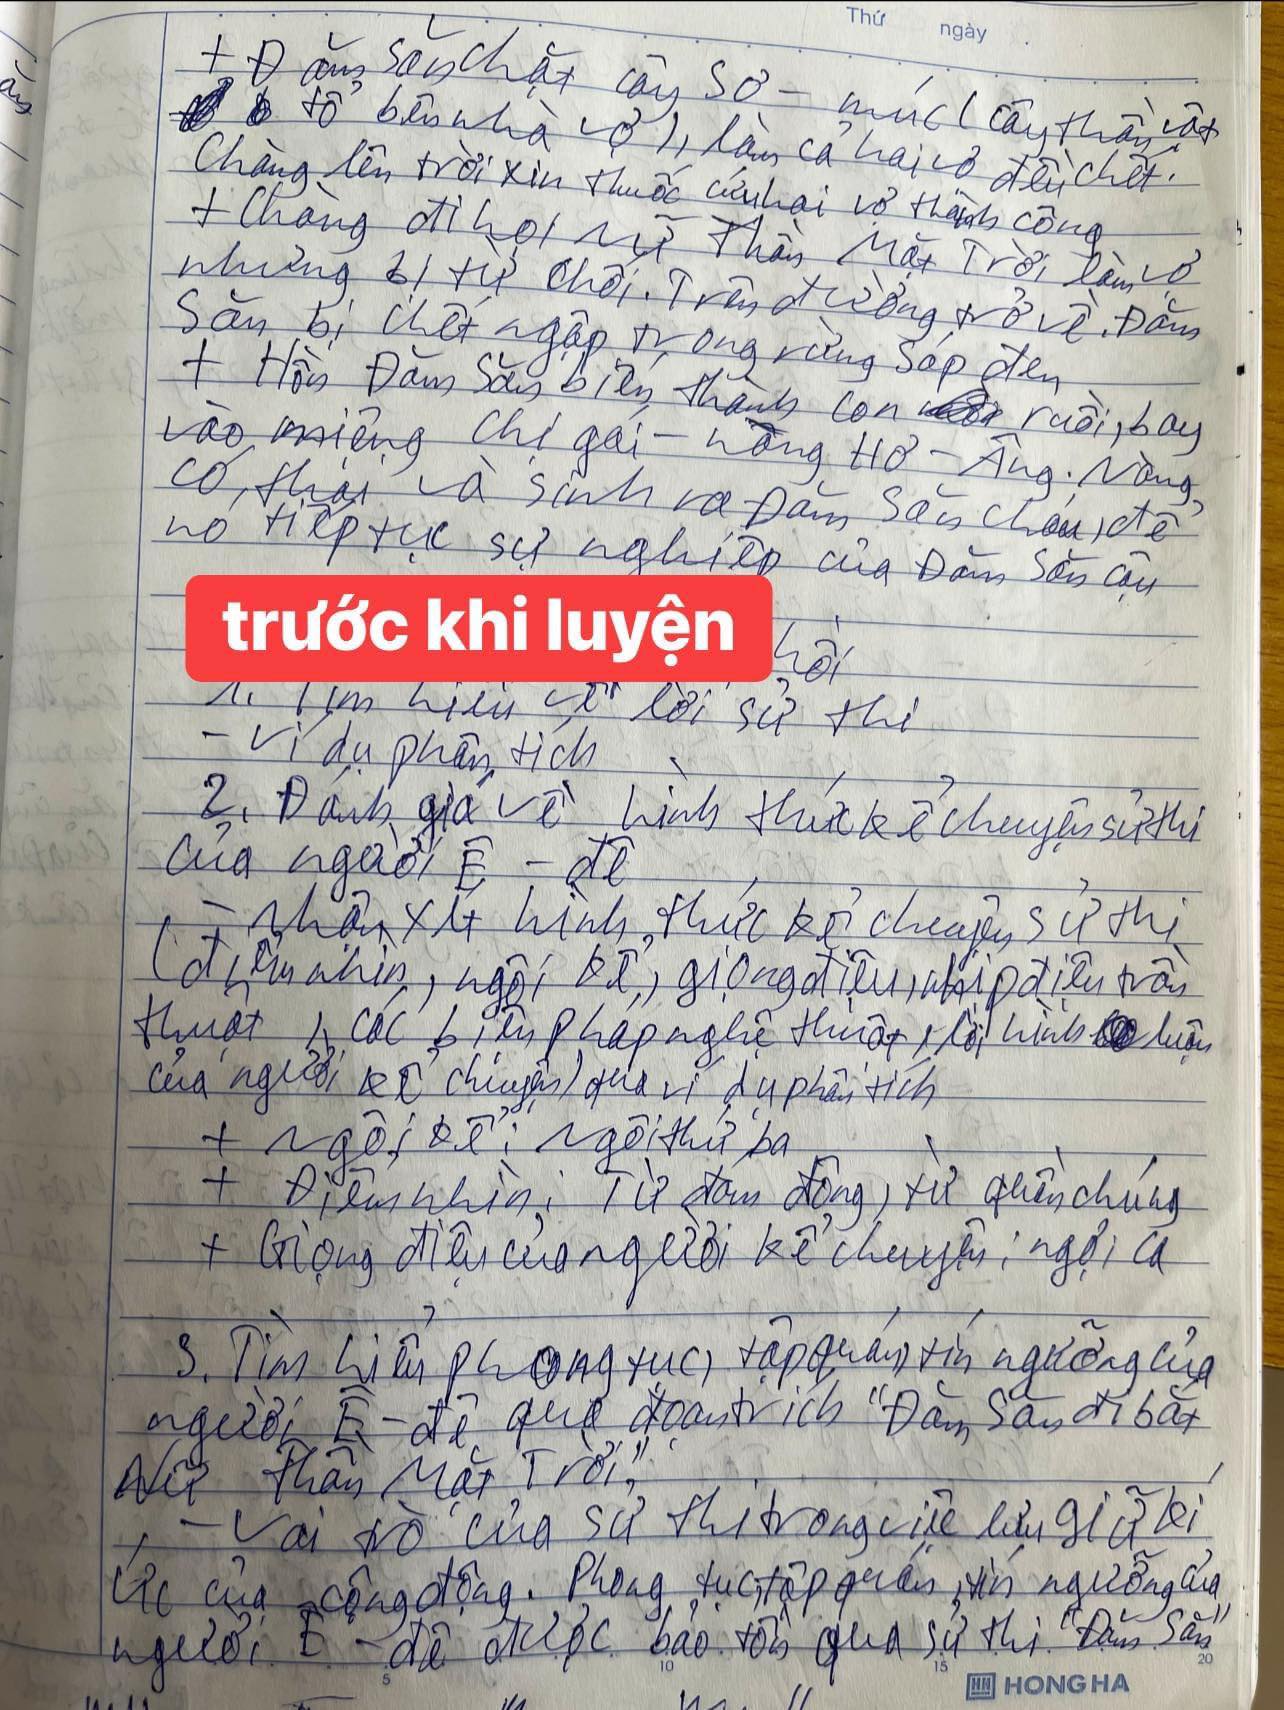 Thứ ngày
+ Đăm Săn chặt cây Sơ – múc (cây thần, vật
tổ bên nhà vợ), làm cả hai vợ đều chết.
Chàng lên trời xin thuốc cứu hai vợ thành công
+ Chàng đi hỏi Nữ Thần Mặt Trời làm vợ
nhưng bị từ chối. Trên đường trở về, Đăm
Săn bị chết ngập trong rừng Sáp đen
+ Hồn Đăm Săn biến thành con ruồi, bay
vào miệng chị gái – nàng Hơ – Âng. Nàng
có thai và sinh ra Đăm Săn cháu, để
nó tiếp tục sự nghiệp của Đăm Săn cậu
trước khi luyện
hồi
1. Tìm hiểu về lời sử thi
- Ví dụ phân tích
2. Đánh giá về hình thức kể chuyện sử thi
của người Ê – đê
- Nhận xét hình thức kể chuyện sử thi
(điểm nhìn, ngôi kể, giọng điệu, nhịp điệu trần
thuật, các biện pháp nghệ thuật, lời bình luận
của người kể chuyện) qua ví dụ phân tích
+ Ngôi kể: Ngôi thứ ba
+ Điểm nhìn: Từ đám đông, từ quần chúng
+ Giọng điệu của người kể chuyện: ngợi ca
3. Tìm hiểu phong tục, tập quán, tín ngưỡng của
người Ê – đê qua đoạn trích "Đăm Săn đi bắt
Nữ Thần Mặt Trời"
- Vai trò của sử thi trong việc lưu giữ kí
ức của cộng đồng. Phong tục, tập quán, tín ngưỡng của
người Ê – đê được bảo tồn qua sử thi "Đăm Săn"
5 10 15 20
HH HONG HA